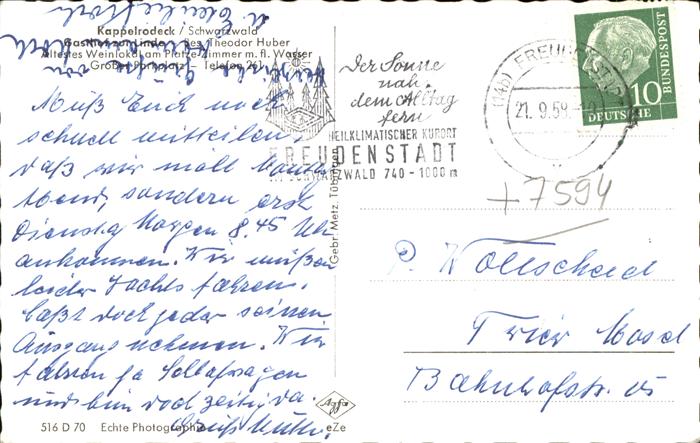 Kappelrodeck / Schwarzwald
Gasthaus zur Linde Bes. Theodor Huber
Ältestes Weinlokal am Platze Zimmer m. fl. Wasser
Großer Parkplatz Telefon 261
Muß Euch noch
schnell mitteilen,
daß wir nicht Montag
Abend, sondern erst
Dienstag Morgen 8.45 Uhr
ankommen. Wir müßen
leider Nachts fahren.
Laßt doch jeder seinen
Ausgang nehmen. Wir
fahren ja Schlafwagen
und bin doch zeitig da.
Gruß Mutti.
516 D 70 Echte Photographie
Agfa
eZe
Gebr. Metz, Tübingen
Der Sonne
nah,
dem Alltag
fern
HEILKLIMATISCHER KURORT
FREUDENSTADT
SCHWARZWALD 740 - 1000 m
(14b) FREUDENSTADT
21. 9.58
10
DEUTSCHE
BUNDESPOST
+7594
P. Wollscheid
Trier Mosel
Bahnhofstr.